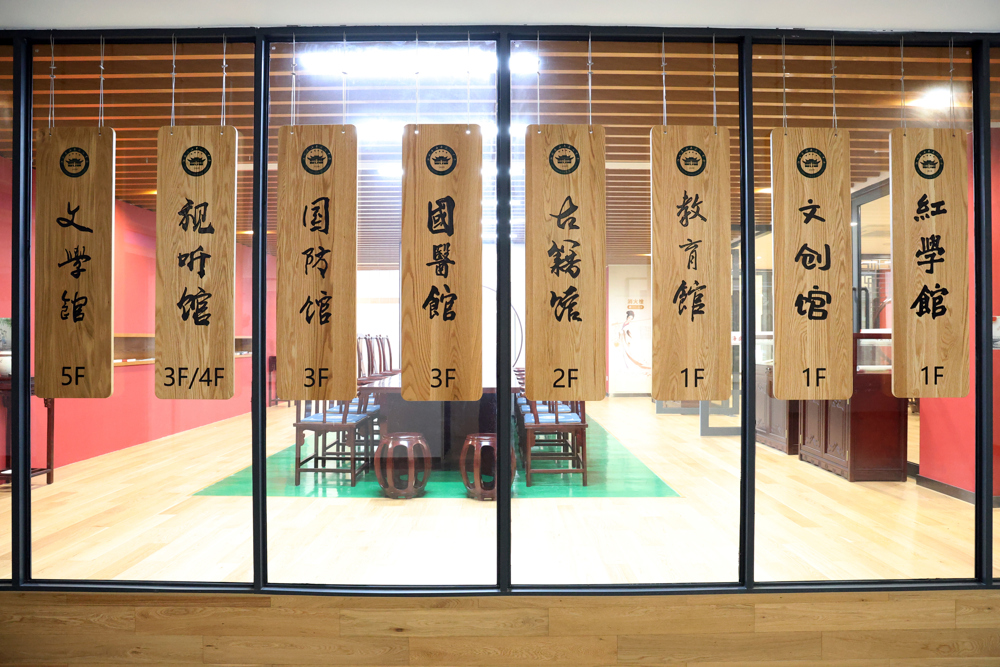 文學館
5F
视听馆
3F/4F
国防馆
3F
國醫館
3F
古籍馆
2F
教育館
1F
文创馆
1F
紅學館
1F